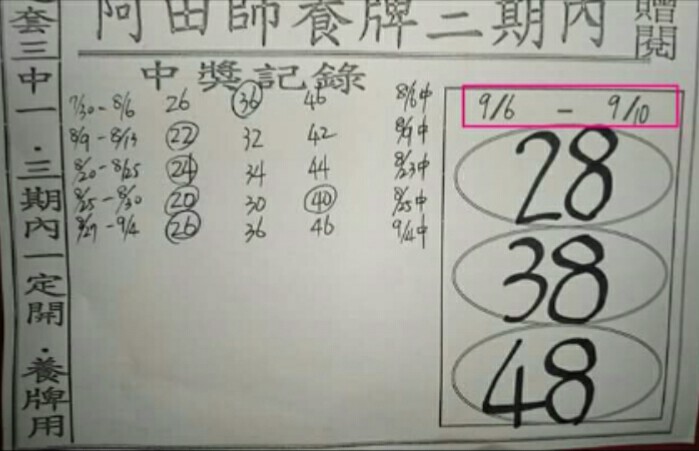 阿田師養牌三期內
贈閱
套三中一．三期內一定開．養牌用
中獎記錄
7/30-8/6 26 36 46 8/6中
8/9-8/13 22 32 42 8/9中
8/20-8/25 24 34 44 8/23中
8/25-8/30 20 30 40 8/25中
8/27-9/4 26 36 46 9/4中
9/6 - 9/10
28
38
48